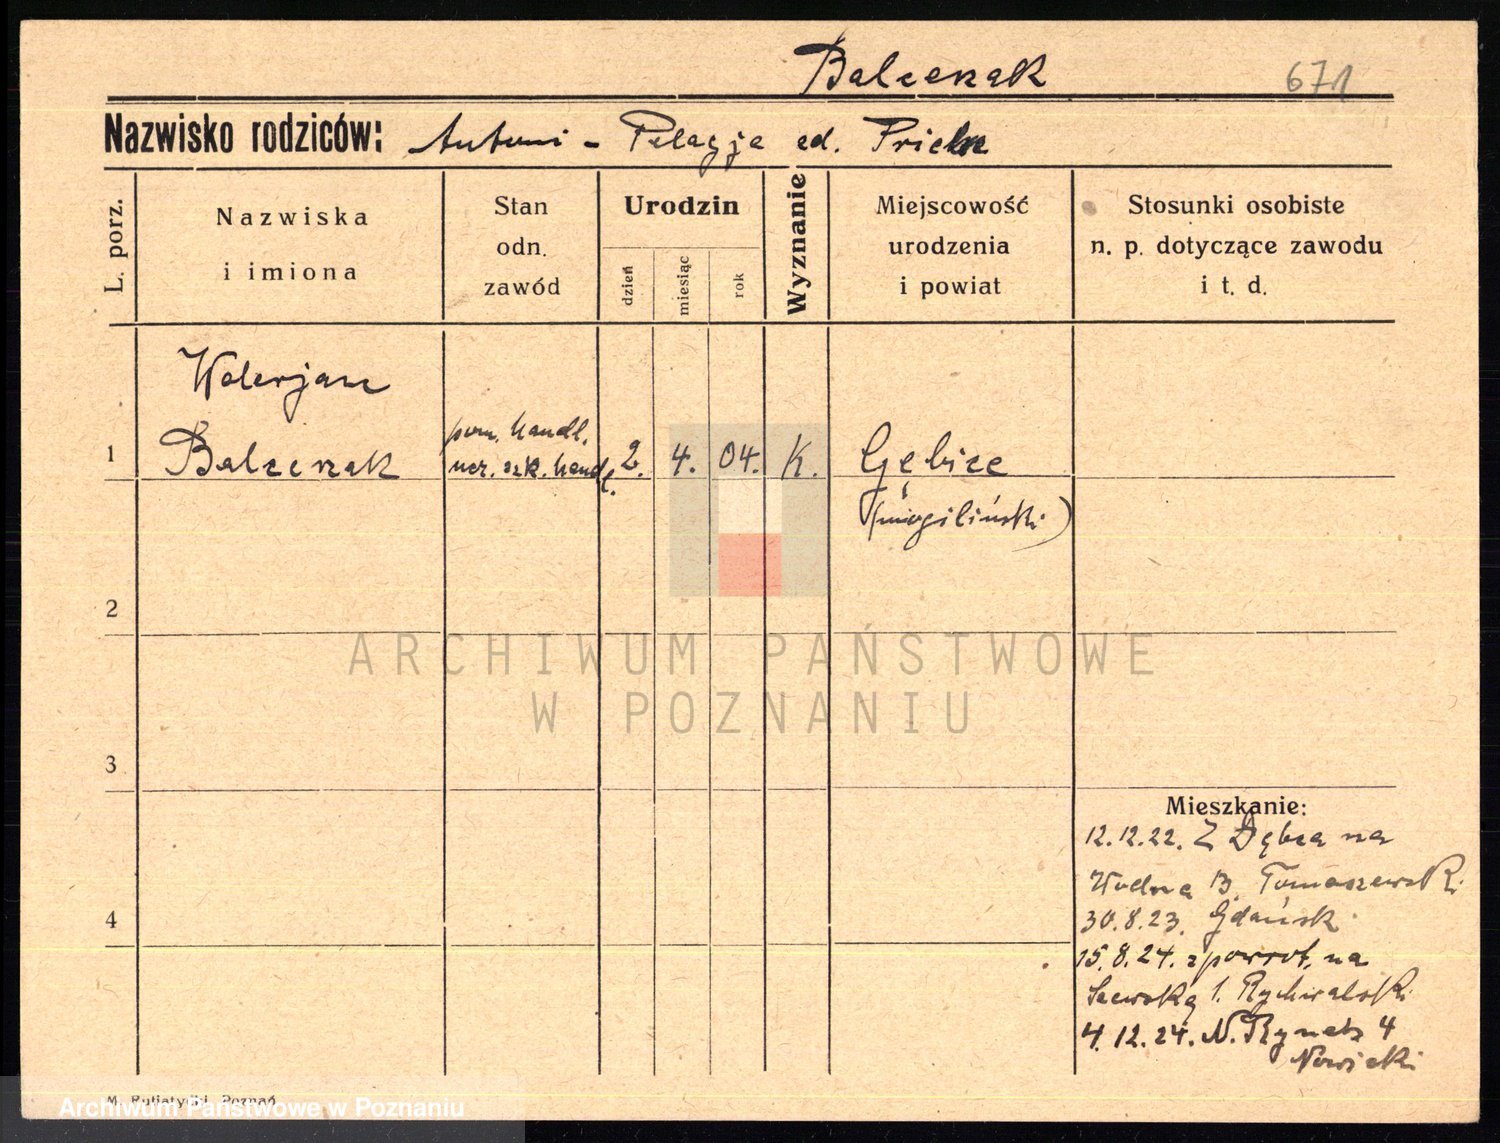 Balcerak 671
Nazwisko rodziców: Antoni - Pelagja
L. porz.
Nazwiska
i imiona
Stan
odn.
zawód
Urodzin
dzień
miesiąc
rok
Wyznanie
Miejscowość
urodzenia
i powiat
Stosunki osobiste
n. p. dotyczące zawodu
i t. d.
Walerjan
1 Balcerak
pom. handl.
ucz. szk. handl.
2. 4. 04. K. Gębice
(mogiliński)
2
3
4
Mieszkanie:
12.12.22. Z Dębca na
Wodną Tomaszewski
30.8.23. Gdańsk.
15.8.24. zpowrot. na
Szewską 1. Rychwalski
4.12.24. N. Rynek 4
Nowicki
M. Putiatycki, Poznań
ARCHIWUM PAŃSTWOWE
W POZNANIU
Archiwum Państwowe w Poznaniu